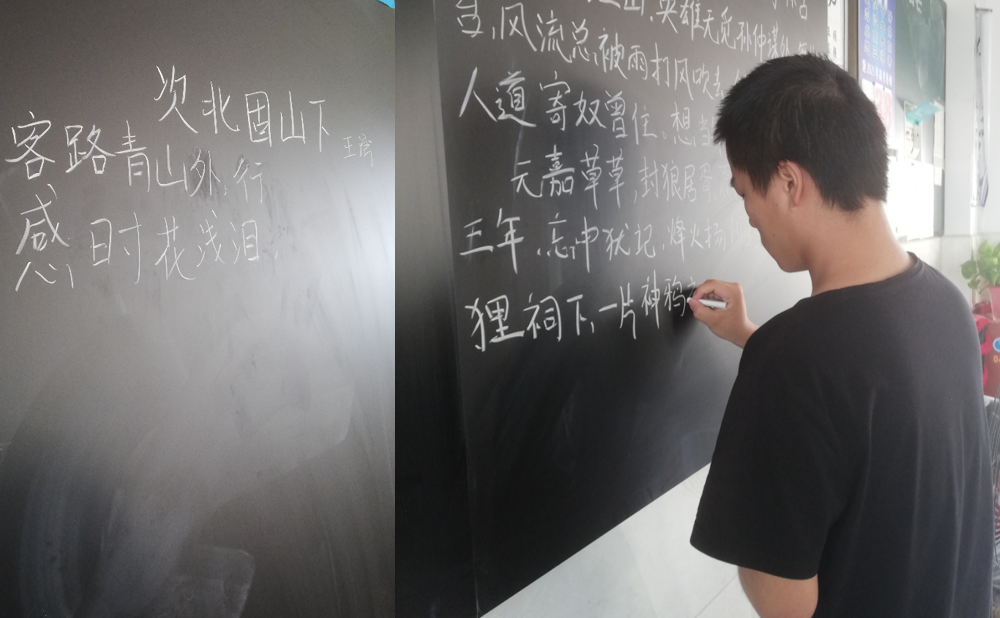 次北固山下
王湾
客路青山外,行
感时花浅泪,
英雄无觅孙仲谋处
,风流总被雨打风吹去
人道寄奴曾住,想
元嘉草草,封狼居
三年,忘中犹记,烽火扬
狸祠下,一片神鸦